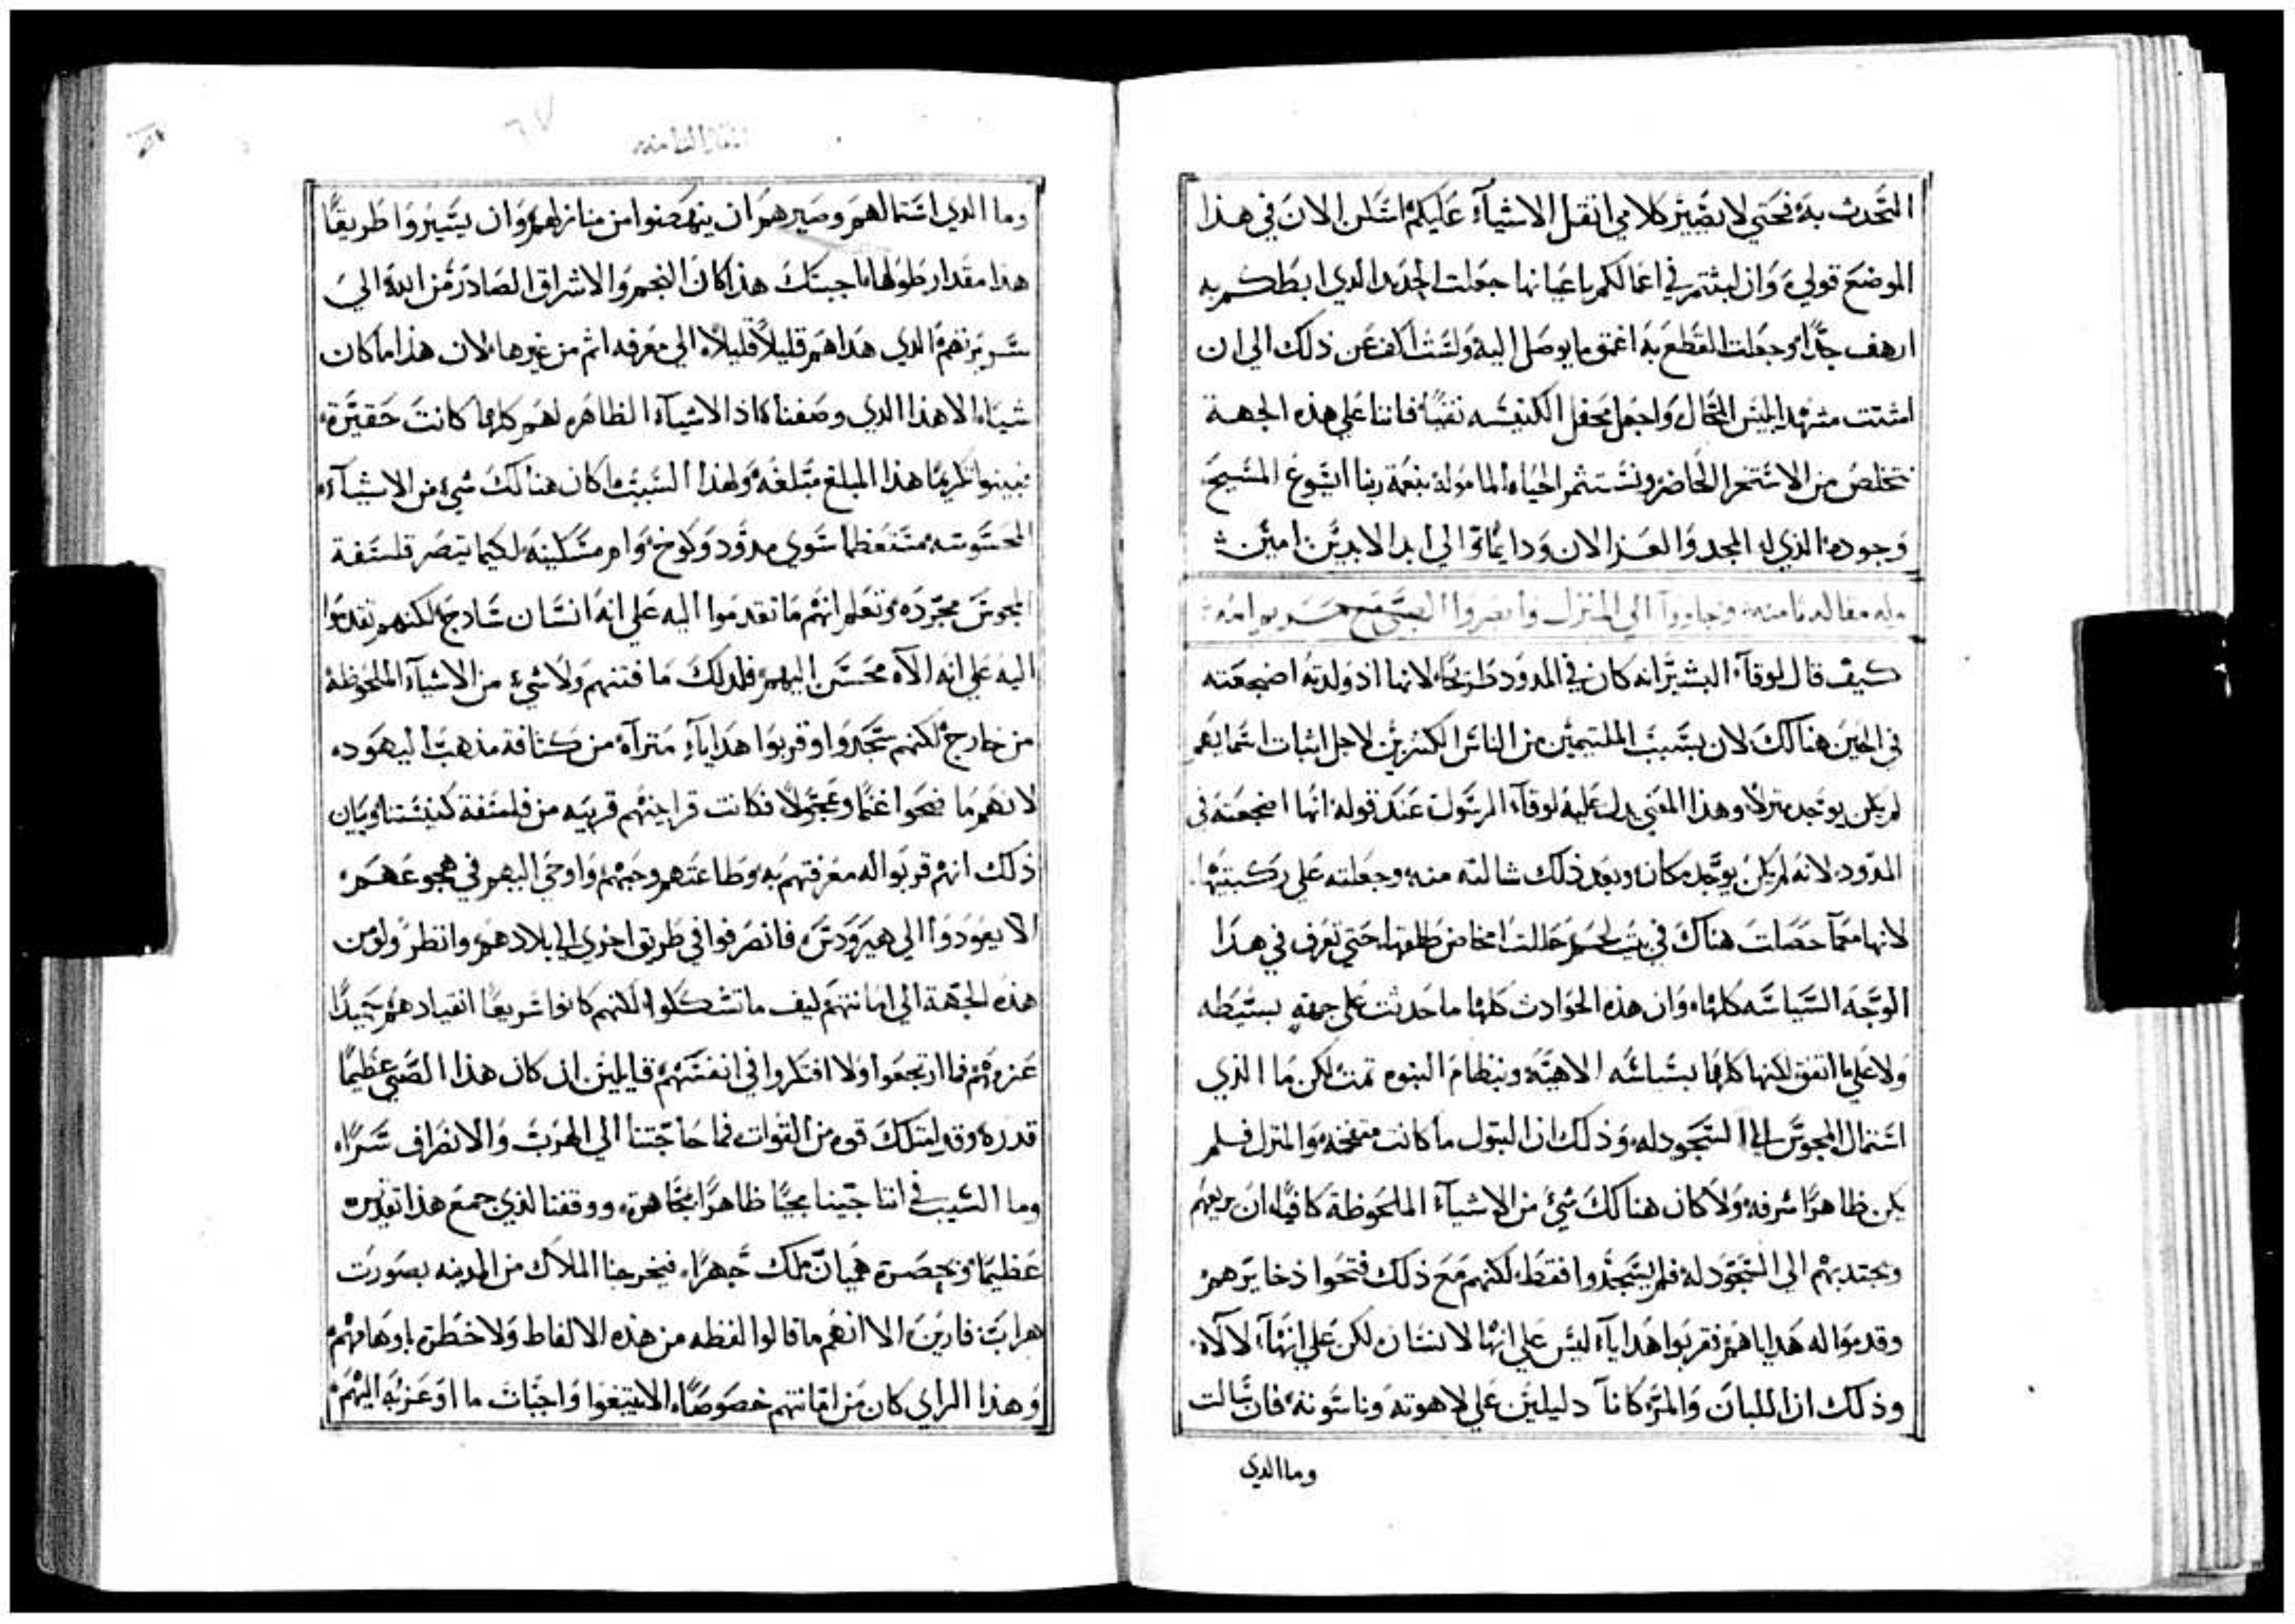 التحدث به فحتي لا يصير كلامي انقل الاشيآء عليكم اسَلن الان في هذا
الموضع قولي وان لبثتم في اعمالكم باعيانها جعلت الحديد الذي ابطكم به
ارهف جدًا وجعلت القطع به اعمق ما يوصل اليه ولست اكف عن ذلك الي ان
اشتت مشهد ابليس المحال واجعل محفل الكنيسه نقيًا فاننا علي هذه الجهة
نتخلص من الاستخرا الحاضر ونستثمر الحياه المامولة بنعمة ربنا ايسوع المسيح
وجوده الذي له المجد والعز الان ودايمًا والي ابد الابدين امين
وله مقاله ثامنه وجاووا الي المنزل وابصروا الصبي مع مريم امه
كيف قال لوقآء البشير انه كان في المدود طريحًا لانها اذ ولدته اضجعته
في الحين هنالك لان بسبب الملتيمين من الناس الكثيرين لاجل اثبات اسمايهم
لم يكن يوجد منزلًا وهذا المعني يدل عليه لوقآء الرسول عند قوله انها اضجعته في
المدود لانه لم يكن يوجد مكان وبعد ذلك شالته منه وجعلته علي ركبتيها
لانها معمآ حصلت هناك في بيت لحم حللت المخاض طلقها حتي تعرف في هذا
الوجه السياسه كلها وان هذه الحوادث كلها ما حدثت علي جهةٍ بسيطه
ولا علي ما اتفق لكنها كلها بسياسه الاهيه وبنظام النبوه تمت لكن ما الذي
استمال المجوس الي السجود له وذلك ان البتول ما كانت متفخمه والمنزل فلم
يكن ظاهرًا شرفه ولا كان هنالك شي من الاشيآء الملحوظة كافيًا ان يريعهم
ويجتدبهم الي السجود له فلم يسجدوا فقط لكنهم مع ذلك فتحوا ذخايرهم
وقدموا له هداياهم فقربوا هدايآء ليس علي انها لانسان لكن علي انهآ لالاه
وذلك ان اللبان والمر كانآ دليلين علي لاهوته وناسوته فان سالت
وما الدي
وما الدي استمالهم وصيرهم ان ينهضوا من منازلهم وان يسيروا طريقًا
هذا مقدار طولها اجبتك هذا كان النجم والاشراق الصادر من الله الي
سريرتهم الدي هداهم قليلًا قليلًا الي معرفه اتم من غيرها لان هذا ما كان
شياء الا هذا الدي وصفناه اذ الاشيآء الظاهره لهم كلها كانت حقيرة
تبينوا تكريمًا هذا المبلغ مبلغه ولهذا السبب ما كان هنالك شيء من الاشيآء
المحسوسه مستعظما سوي مدود وكوخ وام مسكينه لكيما تبصر فلسفة
المجوس مجرده وتعلم انهم ما تقدموا اليه علي انه انسان سادج لكنهم تقدموا
اليه علي انه الآه محسن اليهم فلدلك ما فتنهم ولا شيء من الاشيآء الملحوظة
من خارج لكنهم سجدوا وقربوا هدايآء متبرآه من كثافة مذهب اليهوده
لانهم ما ضحوا غنمًا وعجولًا فكانت قرابينهم قريبه من فلسفة كنيستنا وبيان
ذلك انهم قربوا له معرفتهم به وطاعتهم وحبهم واوحي اليهم في هجوعهم
الا يعودوا الي هيرودس فانصرفوا في طريق اخري الي بلادهم وانظر ولو من
هذه الجهة الي امانتهم كيف ما تشككوا لكنهم كانوا سريعًا انقيادهم جيدًا
عزمهم فما ارتجعوا ولا افتكروا في انفسهم قايلين ان كان هذا الصبي عظيمًا
قدره وقد امتلك قوه من القوات فما حاجتنا الي الهرب والانصراف سرًا
وما السبب في اننا جينا مجيًا ظاهرًا مجاهرة ووقفنا لدي جمع هذا تقديره
عظيمًا وبحصرة هميان ملك جهرًا فيخرجنا الملاك من المدينه بصورت
هراب فارين الا انهم ما قالوا لفظه من هذه الالفاظ ولا خطرت باوهامهم
وهذا الراي كان من امانتهم خصوصًا الا يبتغوا واجبات ما اوعز به اليهم